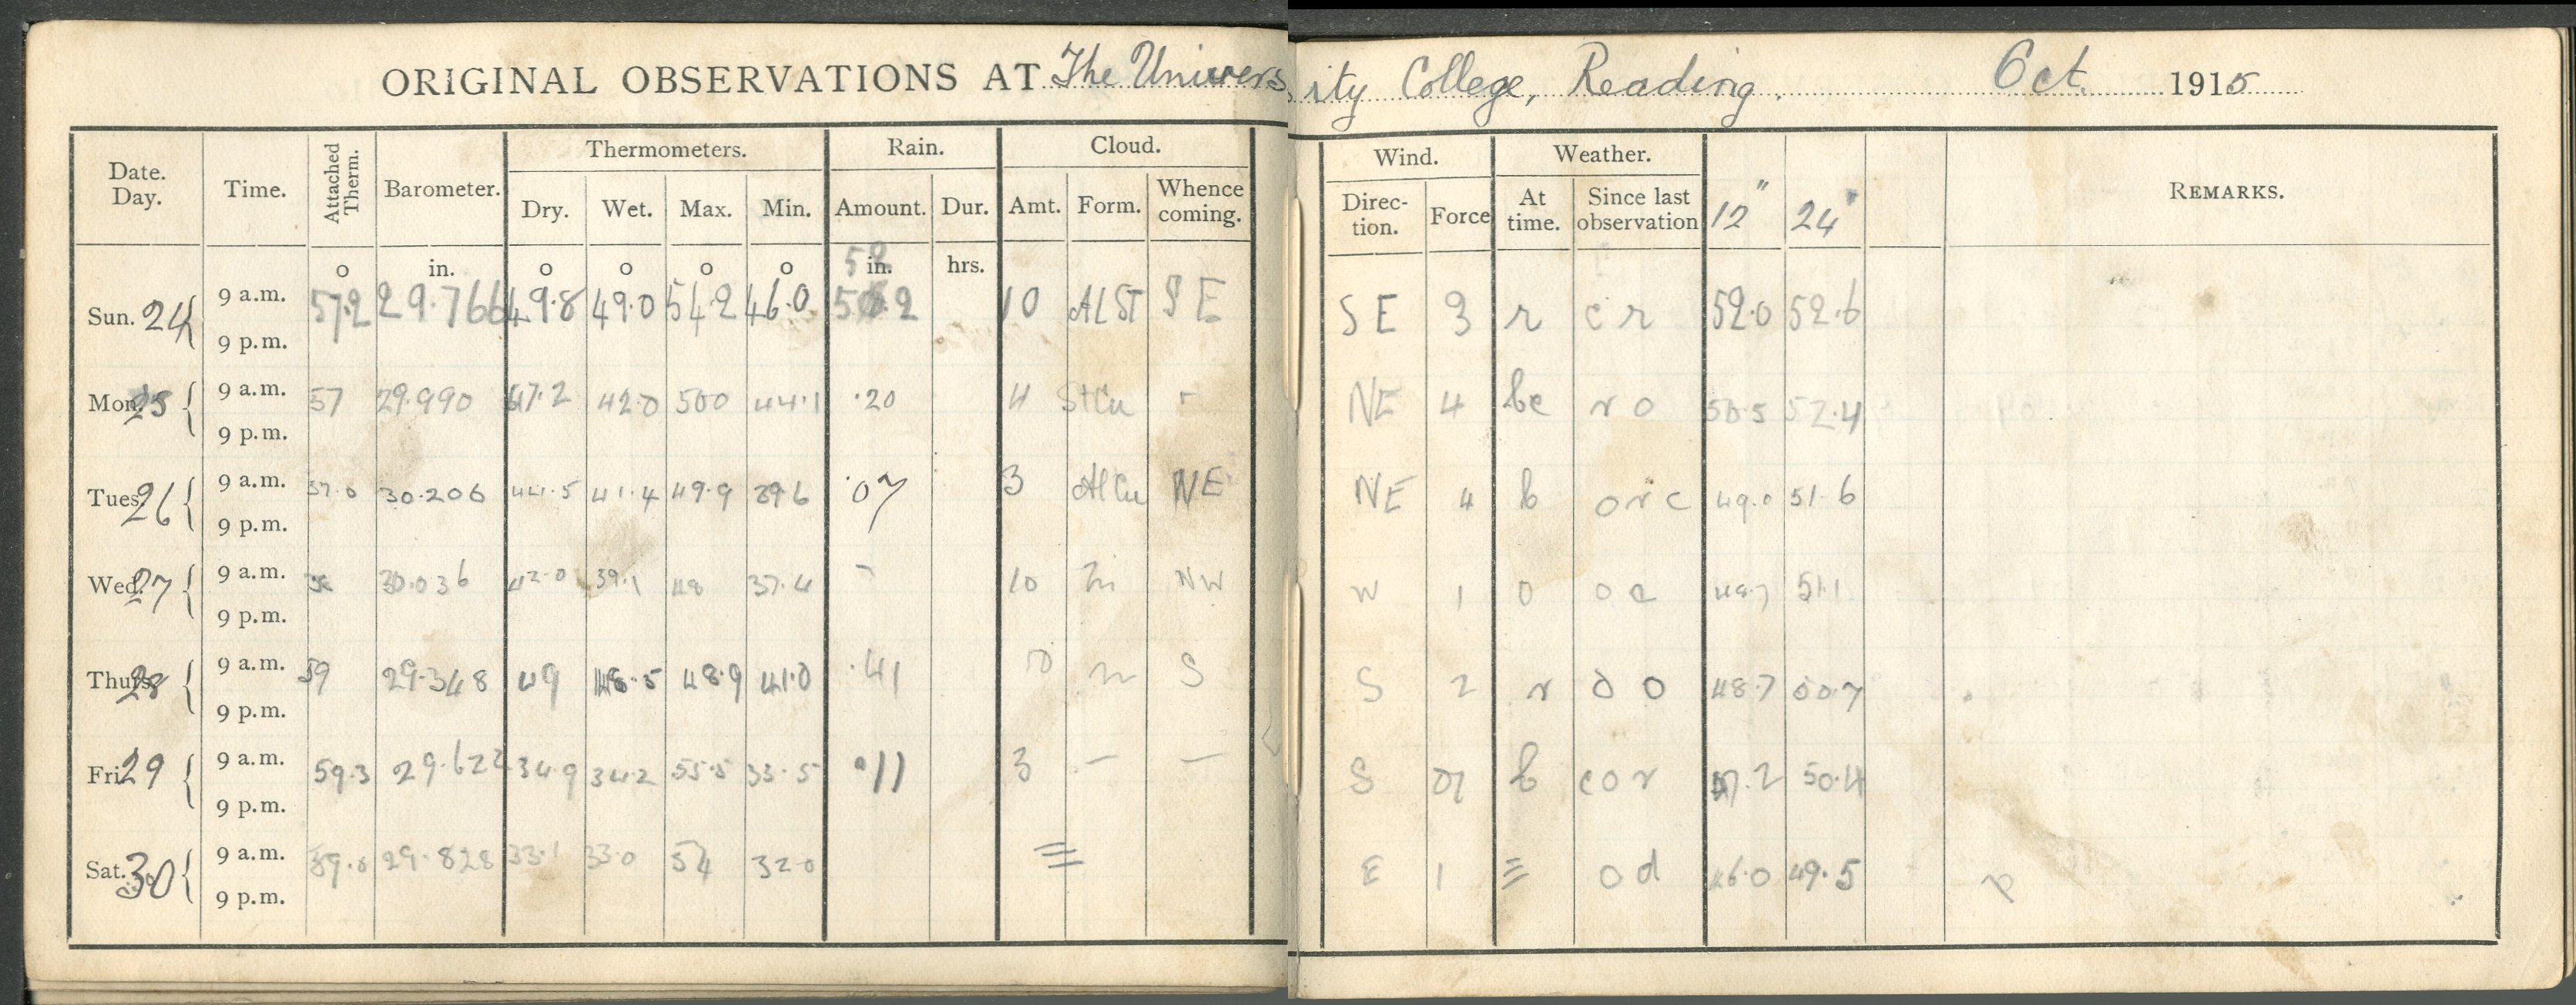 ORIGINAL OBSERVATIONS AT The University College, Reading. Oct. 1915
Date. Day. Time. Attached Therm. Barometer. Thermometers. Rain. Cloud. Wind. Weather. REMARKS.
Dry. Wet. Max. Min. Amount. Dur. Amt. Form. Whence coming. Direc- tion. Force At time. Since last observation 12" 24"
o in. o o o o in. hrs.
Sun. 24 9 a.m. 57.2 29.766 49.8 49.0 54.2 46.0 10 ALST SE SE 3 r c r 52.0 52.6
9 p.m.
Mon. 25 9 a.m. 57 29.990 47.2 42.0 500 44.1 .20 4 StCu - NE 4 bc r o 50.5 52.4
9 p.m.
Tues. 26 9 a.m. 57.0 30.206 44.5 41.4 49.9 39.6 .07 3 AlCu NE NE 4 b o r c 49.0 51.6
9 p.m.
Wed. 27 9 a.m. 30.036 42.0 39.1 48 37.4 - 10 NW W 1 o o c 48.7 51.1
9 p.m.
Thurs. 28 9 a.m. 59 29.348 49 48.5 48.9 41.0 .41 10 S S 2 r o o 48.7 50.7
9 p.m.
Fri. 29 9 a.m. 59.3 29.622 34.9 34.2 55.5 33.5 .11 3 — — S b c o r 47.2 50.4
9 p.m.
Sat. 30 9 a.m. 59.0 29.828 33.1 33.0 54 32.0 ≡ E 1 ≡ o d 46.0 49.5
9 p.m.